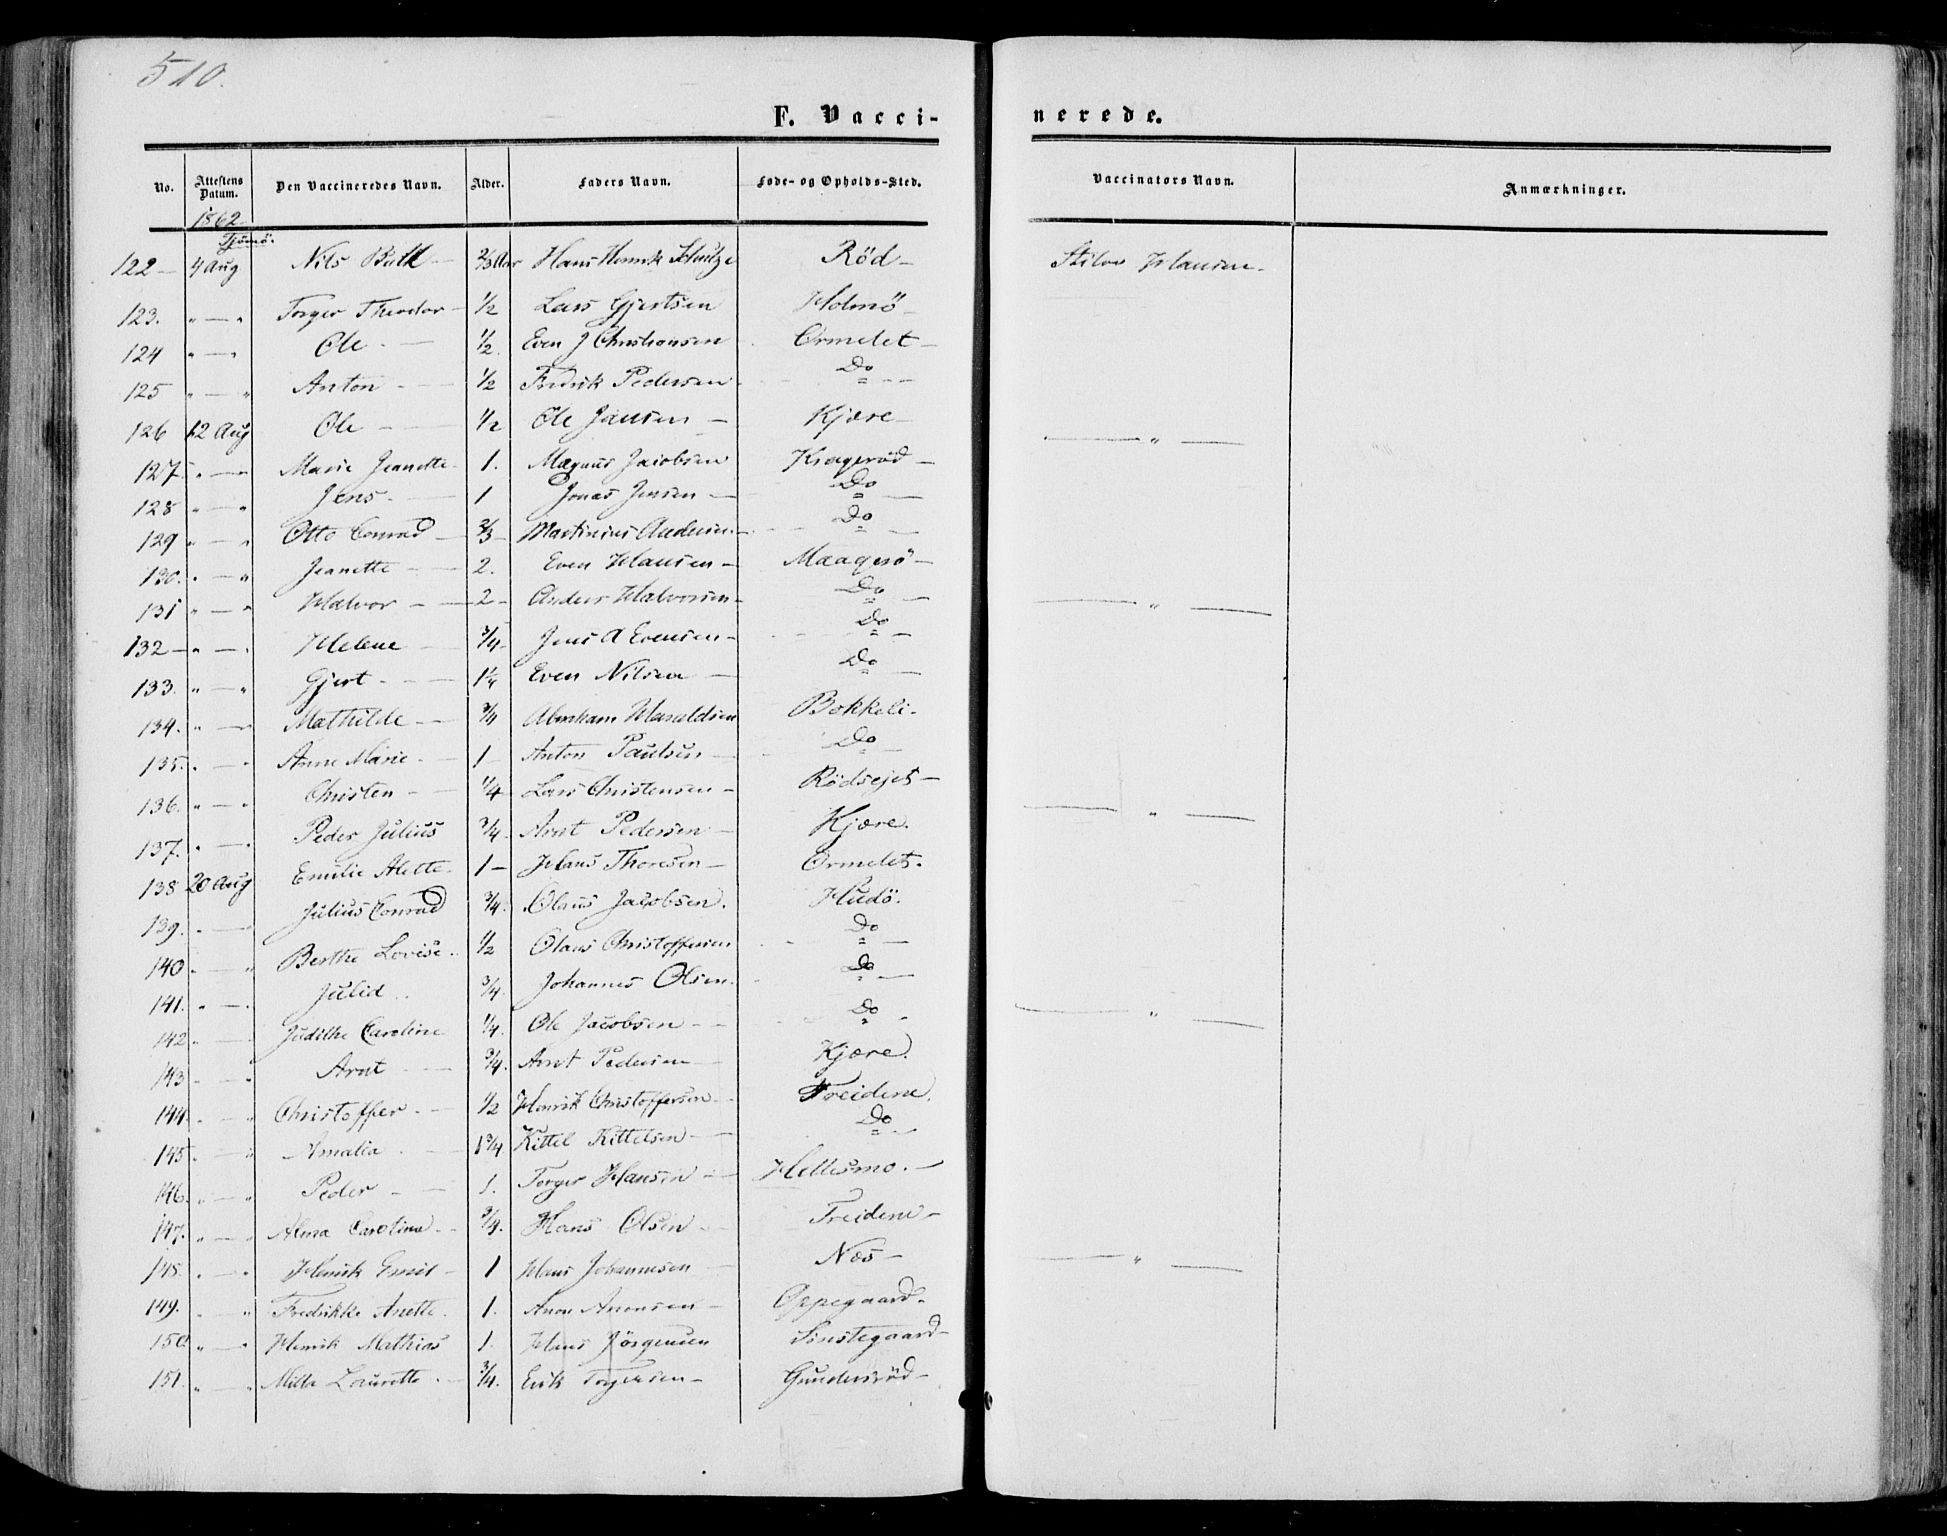 510.
F. Vacci- nerede.
No. Attestens Datum. Den Vaccineredes Navn. Alder. Faders Navn. Føde- og Opholds-Sted. Vaccinators Navn. Anmærkninger.
1862
Tjömö.
122 — 4 Aug Nils — 2/3 Aar Hans Henrik Schultze Röd — Hansen —
123. " — " Torger Theodor — 1/2 Lars Gjertsen Holmö —
124 " — " Ole — 1/2 Even J Christiansen Ormelet —
125 " — " Anton — 1/2 Fredrik Pedersen Do
126 12 Aug Ole — 1/2 Ole Jansen — Kjære — — " —
127. " — " Marie Jeanette 1. Magnus Jacobsen Kragerød —
128 " — " Jens — 1 Jonas Jensen — Do —
129 " — " Otto Conrad — 2/3 Martinius Andersen — Do —
130. " — " Jeanette — 2. Even Hansen — Maagerö —
131 " — " Halvor — 2 — Anders Halvorsen — Do — — " —
132 — " — " Helene — 3/4 Jens A Evensen — Do —
133. " — " Gjert — 1 1/4 Even Nilsen — Do —
134. " — " Mathilde — 3/4 Abraham Haraldsen Bekkeli.
135. " — " Anne Marie — 1 Anton Paulsen — Do —
136. " — " Christen — 1/4 Lars Christensen — Rödsejet —
137. " — " Peder Julius 3/4 Arnt Pedersen — Kjære. — " —
138 20 Aug Emilie Alette. 1 — Hans Thoresen — Ormelet.
139. " — Julius Conrad 3/4. Olaus Jacobsen. Hudö.
140 " — " Berthe Lovise. 1/2 Olaus Christoffersen Do —
141. " — " Julid 3/4. Johannes Olsen. Do —
142 " — Judithe Caroline 1/4. Ole Jacobsen — Do — — " —
143 " — " Arnt — 3/4. Arnt Pedersen — Kjære.
144. " — " Christoffer — 1/2 Henrik Christoffersen — Treidene.
145 " — " Amalia — 1 3/4 Kittel Kittelsen — Do —
146. " — " Peder — 1. Torger Hansen — Hellesmo. —
147. " — " Alma Carolina — 3/4. Hans Olsen — Treidene —
148. " — " Henrik Emil — 1 Hans Johannesen — Næs — — " —
149. " — " Fredrikke Anette. 1. Anon Anonsen — Oppegaard —
150 " — " Henrik Mathias 1. Hans Jörgensen Sönstegaard —
151. " — " Milla Laurette — 3/4. Erik Torgersen — Gundersröd —